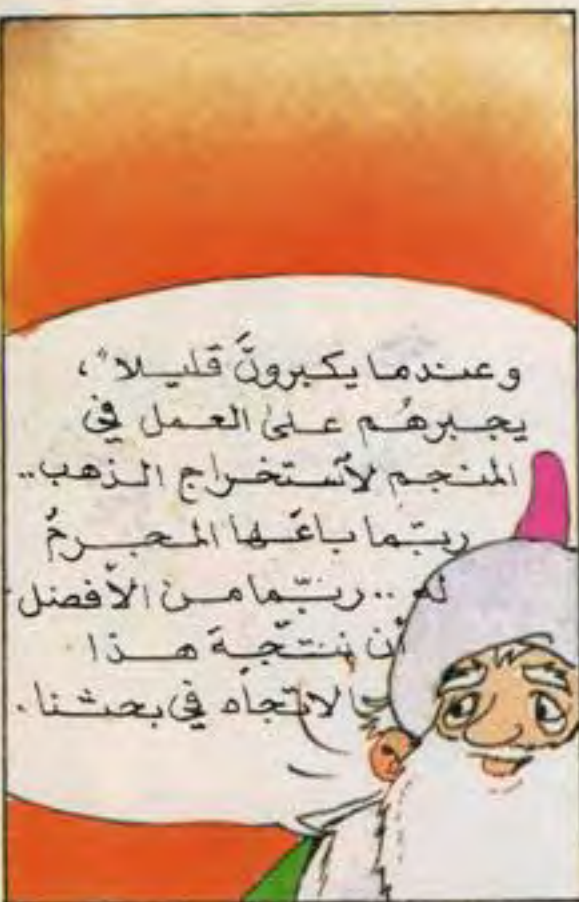 وعندما يكبرونَّ قليلاً،
يجبرهُم على العمل في
المنجم لأستخراج الذهب..
ربّما باعَها المجرمُ
له .. ربّما من الأفضل
أن نتّجهَ هذا
الاتجاه في بحثنا.